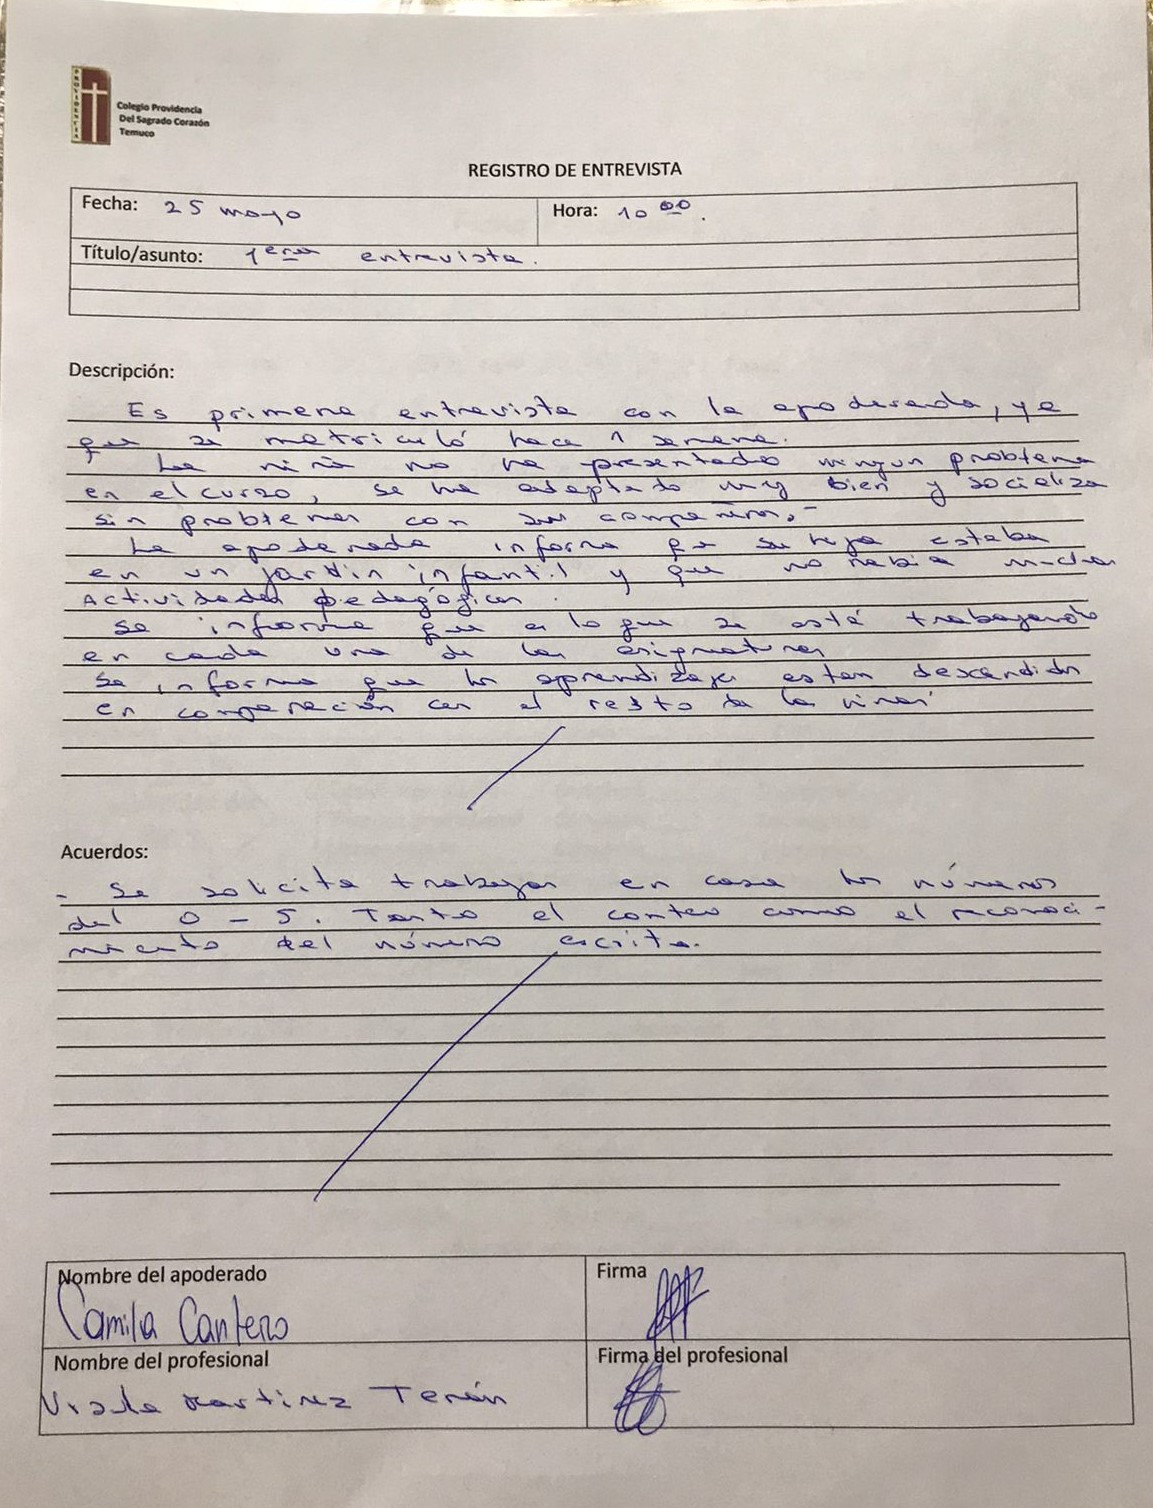 PROVIDENCIA
Colegio Providencia
Del Sagrado Corazón
Temuco
REGISTRO DE ENTREVISTA
Fecha: 25 mayo
Hora: 10 00.
Título/asunto: 1era entrevista.
Descripción:
Es primera entrevista con la apoderada, ya
que se matriculó hace 1 semana.
La niña no ha presentado ningun problema
en el curso, se ha adaptado muy bien y socializa
sin problemas con sus compañeros.-
La apoderada informa que su hija estaba
en un jardín infantil y que no había muchas
Actividades pedagógicas.
Se informa que es lo que se está trabajando
en cada una de las asignaturas
Se informa que los aprendizajes estan descendidos
en comparación con el resto de los niños
Acuerdos:
- Se solicita trabajar en casa los números
del 0 - 5. Tanto el conteo como el reconoci-
miento del número escrito.
Nombre del apoderado
Firma
Camila Cantero
Nombre del profesional
Firma del profesional
Martinez Terán